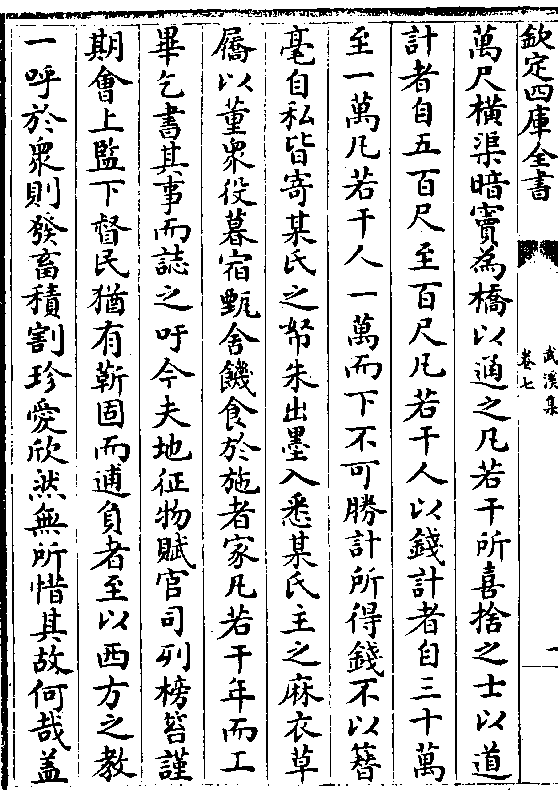 欽定四庫全書
武溪集
卷七
萬尺橫渠暗竇為橋以通之凡若干所喜捨之士以道
計者自五百尺至百尺凡若干人以錢計者自三十萬
至一萬凡若干人一萬而下不可勝計所得錢不以簪
毫自私皆寄某氏之帑朱出墨入悉某氏主之麻衣草
屩以董衆役暮宿甄舍饑食於施者家凡若干年而工
畢乞書其事而誌之吁今夫地征物賦官司列榜笞謹
期會上監下督民猶有靳固而逋負者至以西方之教
一呼於衆則發畜積割珍愛欣然無所惜其故何哉盖